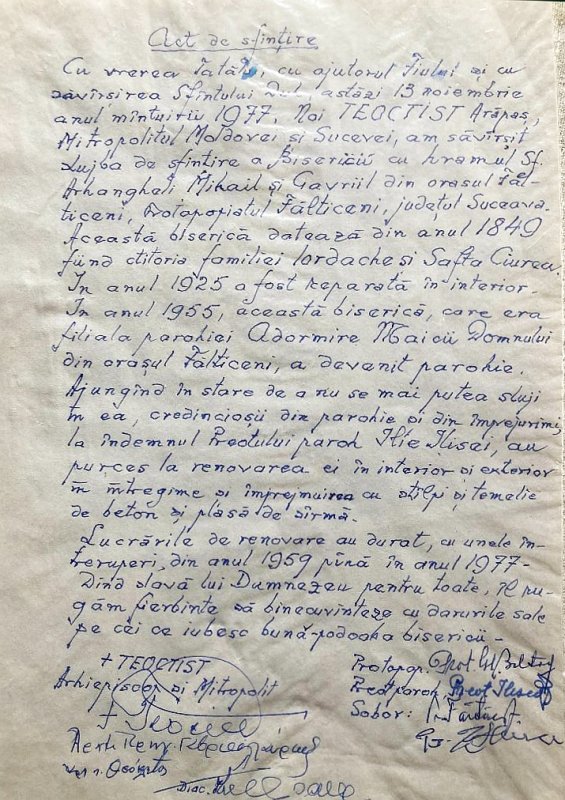 Act de sfințire
Cu vrerea Tatălui, cu ajutorul Fiului și cu
săvîrsirea Sfîntului Duh, astăzi 13 noiembrie
anul mîntuirii 1977. Noi TEOCTIST Arăpaș,
Mitropolitul Moldovei si Sucevei, am săvîrșit
slujba de sfințire a Bisericii cu hramul Sf.
Arhangheli Mihail și Gavriil din orasul Făl-
ticeni, Protopopiatul Fălticeni, județul Suceava.
Această biserică datează din anul 1849
fiind ctitoria familiei Iordache si Safta Ciurea.
In anul 1925 a fost reparată în interior.
In anul 1955, această biserică, care era
filiala parohiei Adormire Maicii Domnului
din orașul Fălticeni, a devenit parohie.
Ajungînd în stare de a nu se mai putea sluji
în ea, credincioșii din parohie și din împrejurimi,
la îndemnul Preotului paroh Ilie Ilisei, au
purces la renovarea ei în interior și exterior
în întregime și împrejmuirea cu stîlpi și temelie
de beton și plasă de sîrmă.
Lucrările de renovare au durat, cu unele în-
treruperi, din anul 1959 pînă în anul 1977-
Dînd slavă lui Dumnezeu pentru toate, Îl ru-
găm fierbinte să binecuvinteze cu darurile sale
pe cei ce iubesc bună-podoaba bisericii -
+ TEOCTIST
Arhiepiscop și Mitropolit
Protopop:
Preot paroh: Preot Ilisei
Sobor:
Diac.